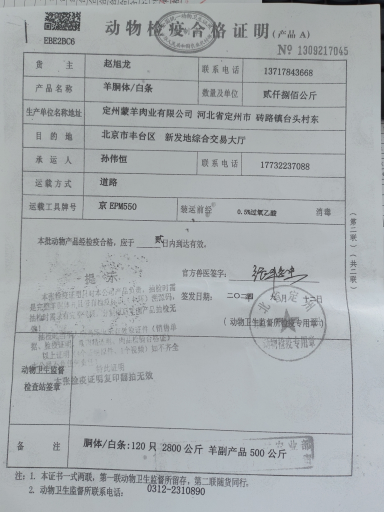 动物检疫合格证明（产品 A）
EBE2BC6
№ 1309217045
货 主 赵旭龙 联系电话 13717843668
产品名称 羊胴体/白条 数量及单位 贰仟捌佰公斤
生产单位名称地址 定州蒙羊肉业有限公司 河北省定州市 砖路镇台头村东
目的地 北京市丰台区 新发地综合交易大厅
承运人 孙伟恒 联系电话 17732237088
运载方式 道路
运载工具牌号 京 EPM550 装运前经 0.5%过氧乙酸 消毒
本批动物产品经检疫合格，应于 贰 日内到达有效。
官方兽医签字：
签发日期：
（动物卫生监督所检疫专用章）
提示
本张检疫证明复印翻拍无效
动物检疫专用章
动物卫生监督
检查站签章
备 注 胴体/白条:120 只 2800 公斤 羊副产品 500 公斤
（第二联）（共二联）
注：1. 本证书一式两联，第一联动物卫生监督所留存，第二联随货同行。
2. 动物卫生监督所联系电话： 0312-2310890